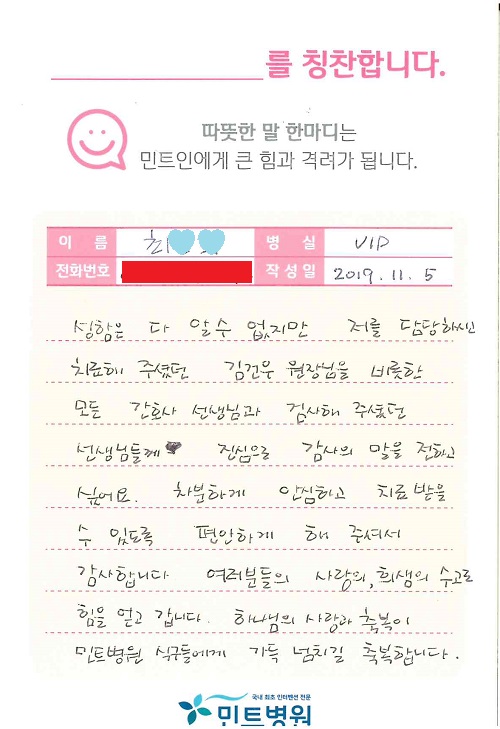 를 칭찬합니다.
따뜻한 말 한마디는
민트인에게 큰 힘과 격려가 됩니다.
이 름 최 병 실 VIP
전화번호 작성일 2019. 11. 5
성함은 다 알수 없지만 저를 담당하신
치료해 주셨던 김건우 원장님을 비롯한
모든 간호사 선생님과 검사해 주셨던
선생님들께 진심으로 감사의 말을 전하고
싶어요. 차분하게 안심하고 치료 받을
수 있도록 편안하게 해 주셔서
감사합니다 여러분들의 사랑의, 희생의 수고로
힘을 얻고 갑니다. 하나님의 사랑과 축복이
민트병원 식구들에게 가득 넘치길 축복합니다.
국내 최초 인터벤션 전문
민트병원